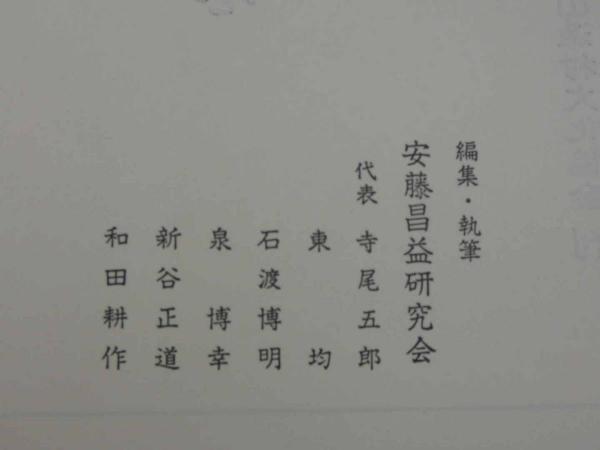 編集・執筆
安藤昌益研究会
代表 寺尾五郎
東 均
石渡博明
泉 博幸
新谷正道
和田耕作